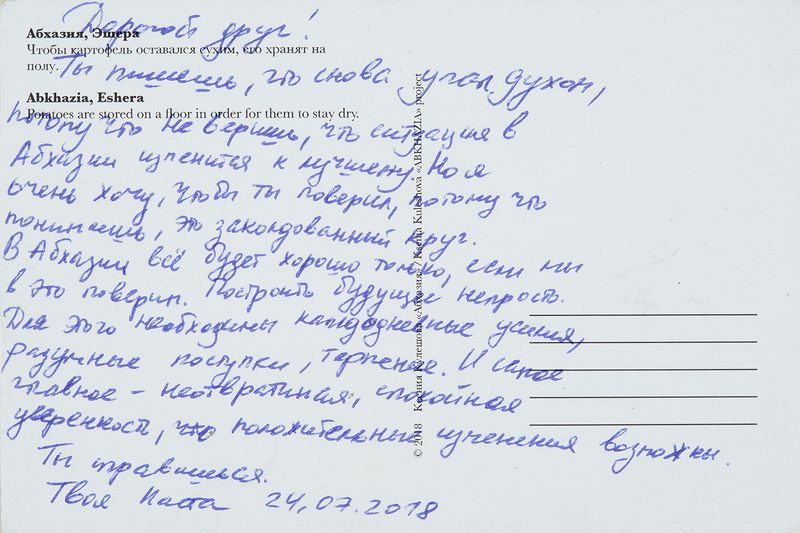 Абхазия, Эшера
Чтобы картофель оставался сухим, его хранят на
полу.
Abkhazia, Eshera
Potatoes are stored on a floor in order for them to stay dry.
© 2018 Ксения Кулешова «Абхазия» / Ksenia Kuleshova «ABKHAZIA» project
Дорогой друг!
Ты пишешь, что снова упал духом,
потому что не веришь, что ситуация в
Абхазии изменится к лучшему. Но я
очень хочу, чтобы ты поверил, потому что
понимаешь, это заколдованный круг.
В Абхазии всё будет хорошо только, если мы
в это поверим. Построить будущее непросто.
Для этого необходимы каждодневные усилия,
разумные поступки, терпение. И самое
главное – неотвратимая, спокойная
уверенность, что положительные изменения возможны.
Ты справишься.
Твоя 24.07.2018